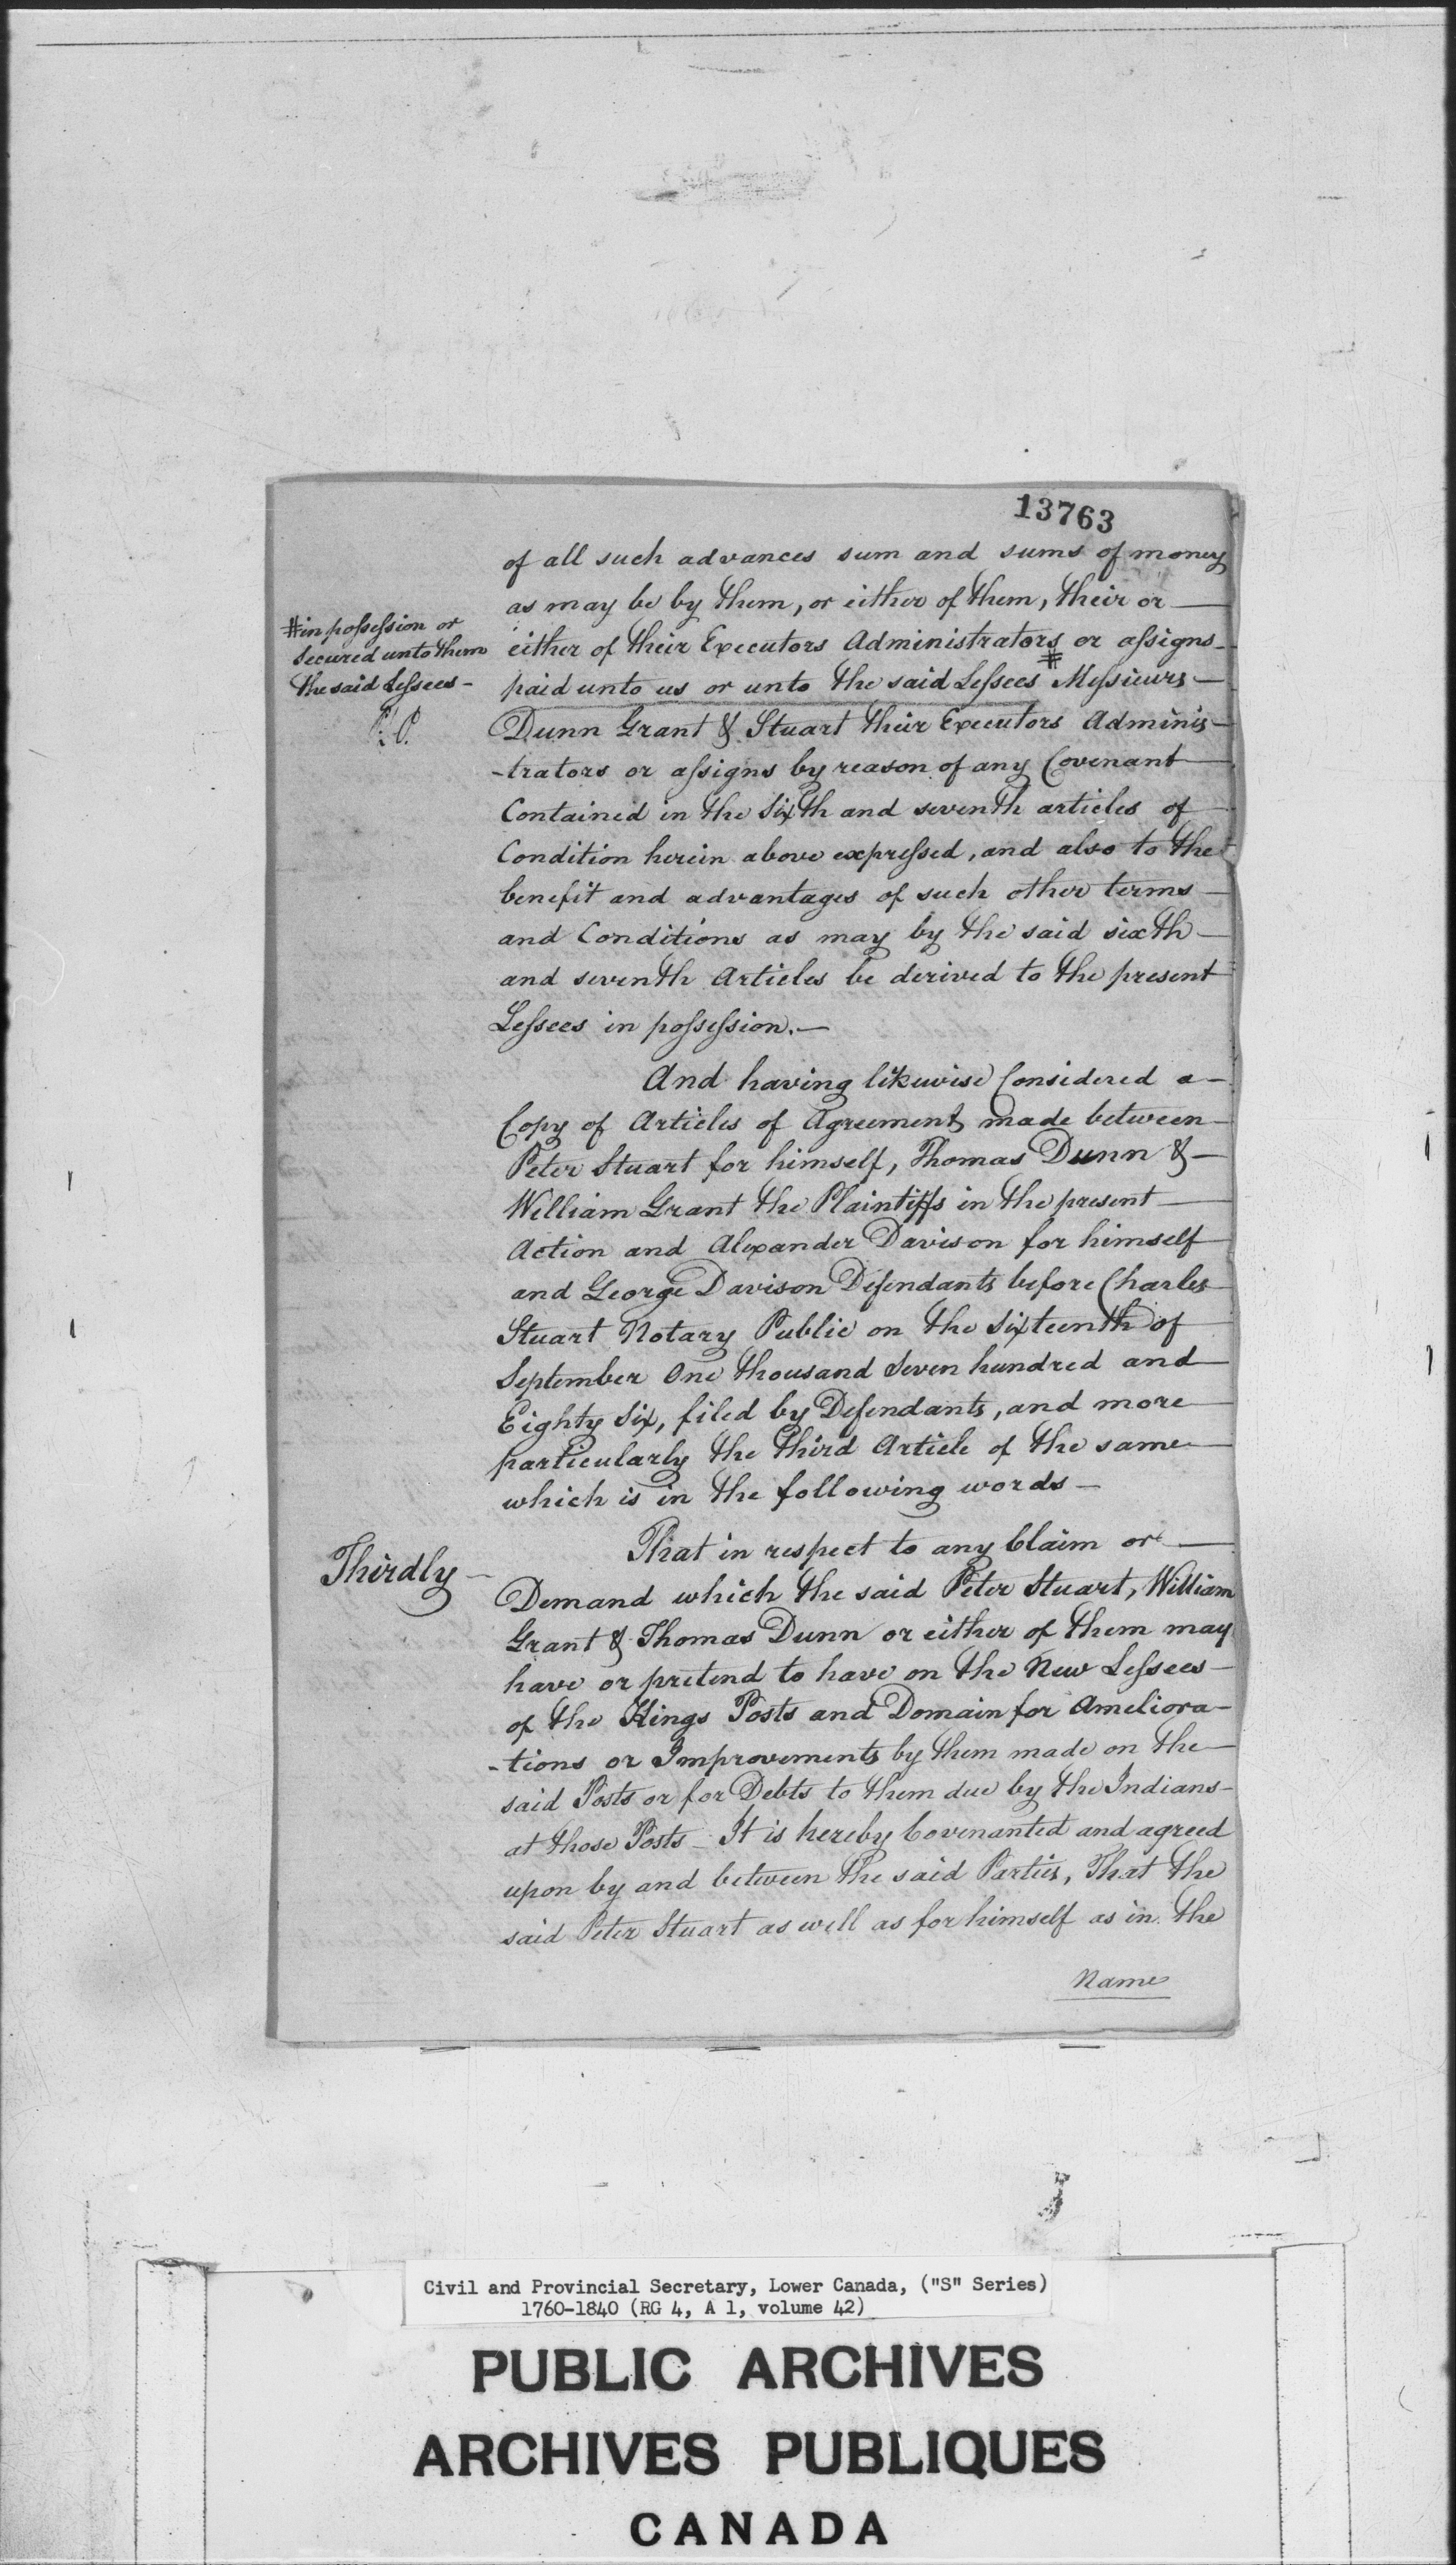 13763
of all such advances sum and sums of money
as may be by them, or either of them, their or —
either of their Executors Administrators or assigns —
#in possession or
Secured unto them
the said Lessees —
paid unto us or unto the said Lessees # Messieurs —
Dunn Grant & Stuart their Executors Adminis-
-trators or assigns by reason of any Covenant
Contained in the Sixth and seventh articles of
Condition herein above expressed, and also to the
benefit and advantages of such other terms —
and Conditions as may by the said sixth —
and seventh Articles be derived to the present
Lessees in possession. —
And having likewise Considered a —
Copy of Articles of Agreement made between —
Peter Stuart for himself, Thomas Dunn & —
William Grant the Plaintiffs in the present —
Action and Alexander Davison for himself
and George Davison Defendants before Charles
Stuart Notary Public on the Sixteenth of
September One thousand Seven hundred and
Eighty Six, filed by Defendants, and more
particularly the third Article of the same —
which is in the following words —
Thirdly —
That in respect to any Claim or —
Demand which the said Peter Stuart, William
Grant & Thomas Dunn or either of them may
have or pretend to have on the New Lessees —
of the Kings Posts and Domain for Ameliora-
-tions or Improvements by them made on the —
said Posts or for Debts to them due by the Indians —
at those Posts — It is hereby Covenanted and agreed
upon by and between the said Parties, That the
said Peter Stuart as well as for himself as in the
Name
Civil and Provincial Secretary, Lower Canada, ("S" Series)
1760-1840 (RG 4, A 1, volume 42)
PUBLIC ARCHIVES
ARCHIVES PUBLIQUES
CANADA